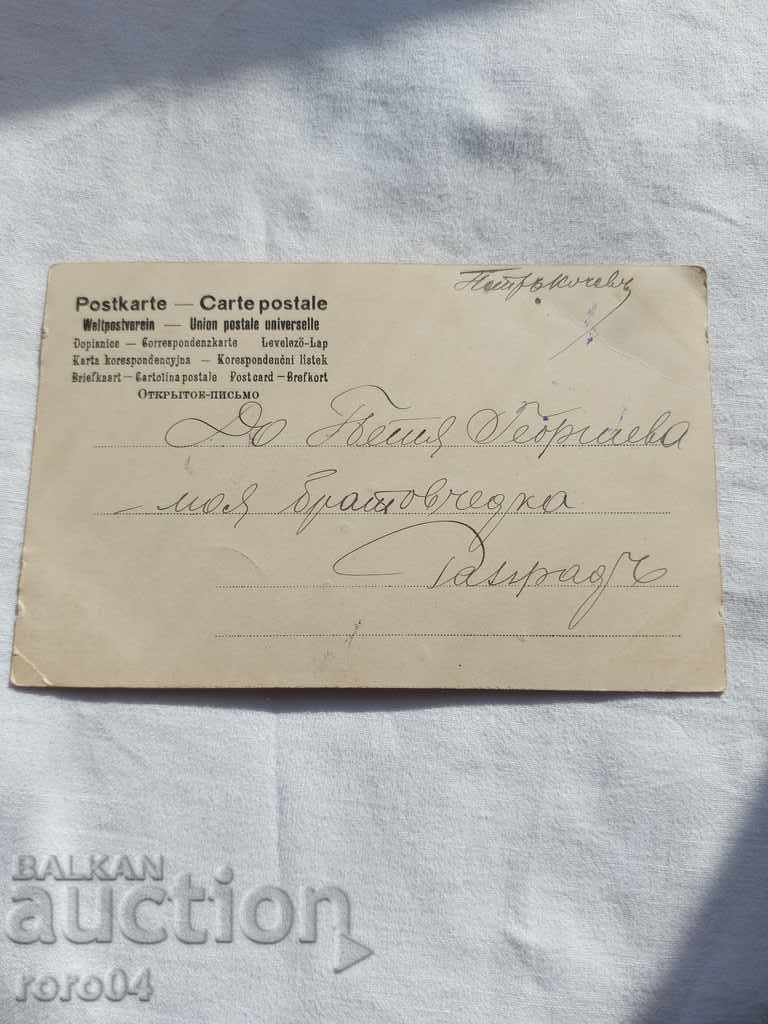 Петръ Кочевъ
Postkarte — Carte postale
Weltpostverein — Union postale universelle
Dopisnice — Correspondenzkarte Levelező-Lap
Karta korespondencyjna — Korespondenční listek
Briefkaart — Cartolina postale Post card — Brefkort
Открытое-письмо
До Пѣня Георгиева
– моя братовчедка
Разградъ
BALKAN
auction
roro04